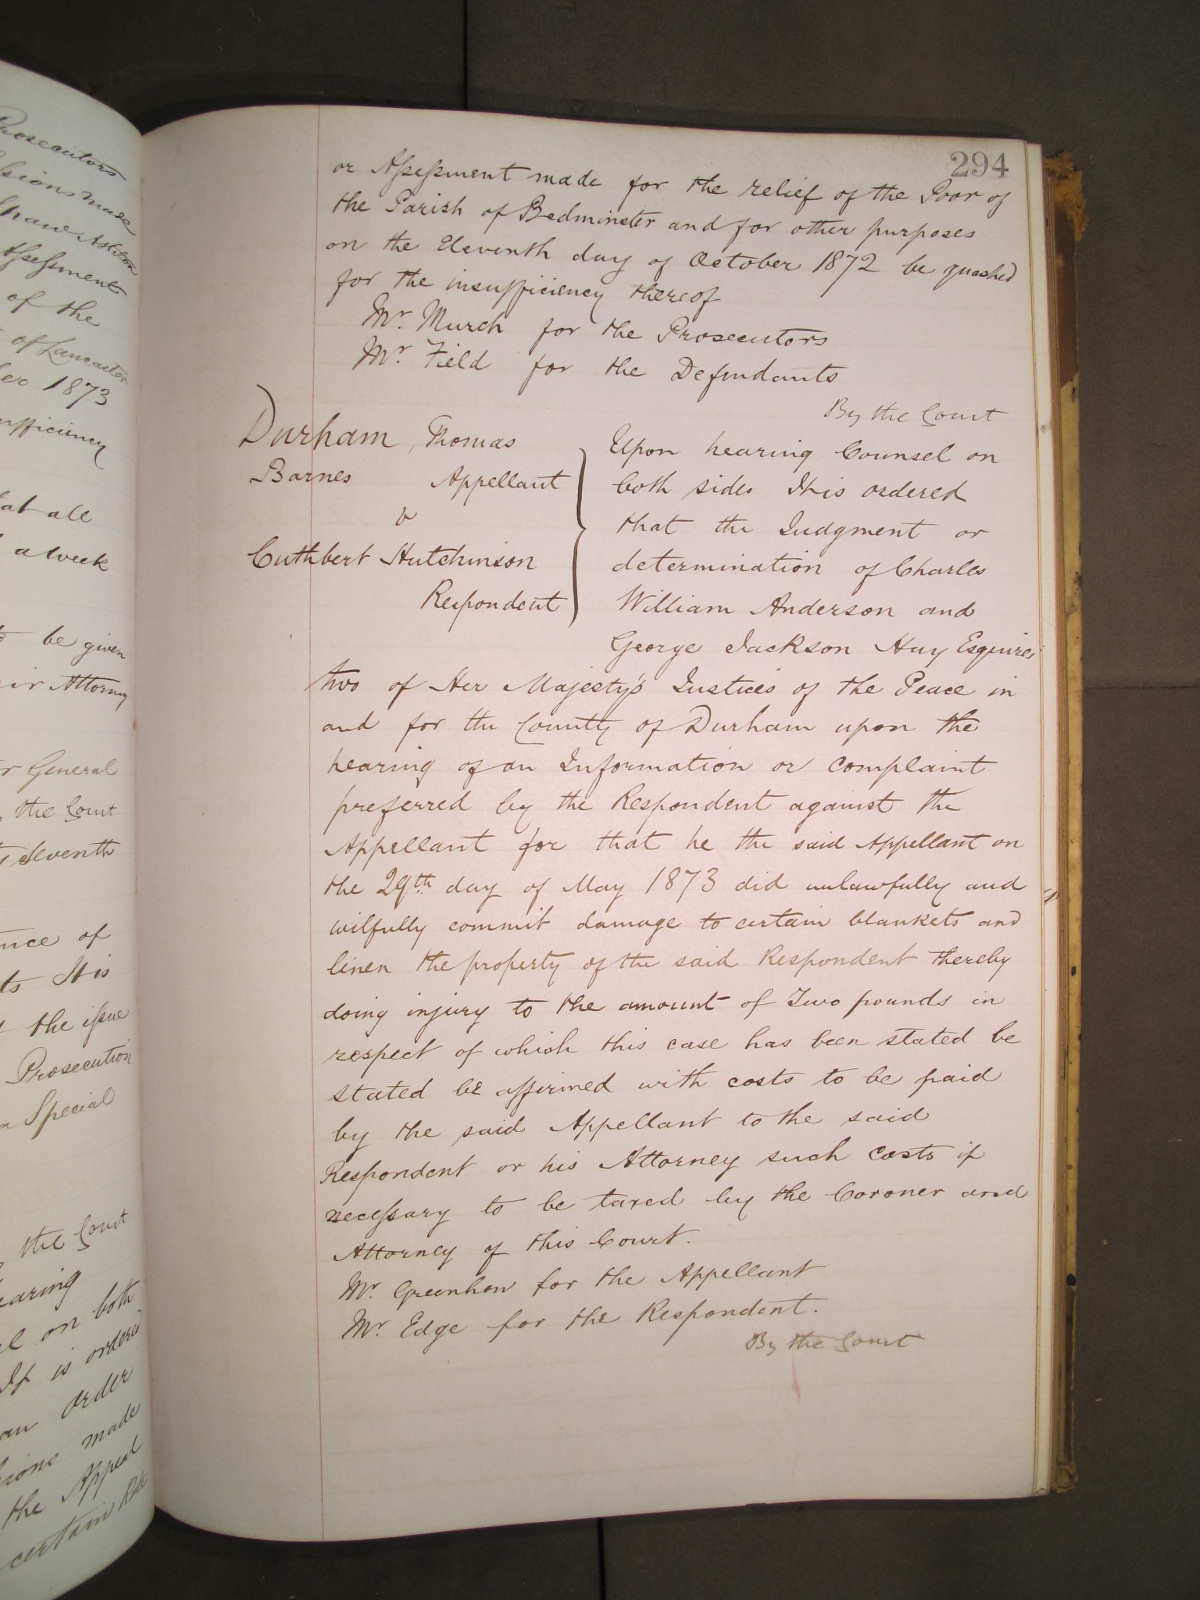 Prosecutors
made
Assessment
of the
of Lancaster
1873
at all
a week
be given
Attorney
General
the Court
Eleventh
of
It is
the issue
Prosecution
Special
the Court
on both
It is ordered
an order
made
the Appeal
certain Rate
294
or Assessment made for the relief of the Poor of
the Parish of Bedminster and for other purposes
on the Eleventh day of October 1872 be quashed
for the insufficiency thereof
Mr. Murch for the Prosecutors
Mr. Field for the Defendants
By the Court
Durham, Thomas
Barnes Appellant
v
Cuthbert Hutchinson
Respondent
Upon hearing Counsel on
both sides It is ordered
that the Judgment or
determination of Charles
William Anderson and
George Jackson Hay Esquires
two of Her Majesty's Justices of the Peace in
and for the County of Durham upon the
hearing of an Information or complaint
preferred by the Respondent against the
Appellant for that he the said Appellant on
the 29th day of May 1873 did unlawfully and
wilfully commit damage to certain blankets and
linen the property of the said Respondent thereby
doing injury to the amount of Two pounds in
respect of which this case has been stated be
stated be affirmed with costs to be paid
by the said Appellant to the said
Respondent or his Attorney such costs if
necessary to be taxed by the Coroner and
Attorney of this Court.
Mr. Greenhow for the Appellant
Mr. Edge for the Respondent.
By the Court